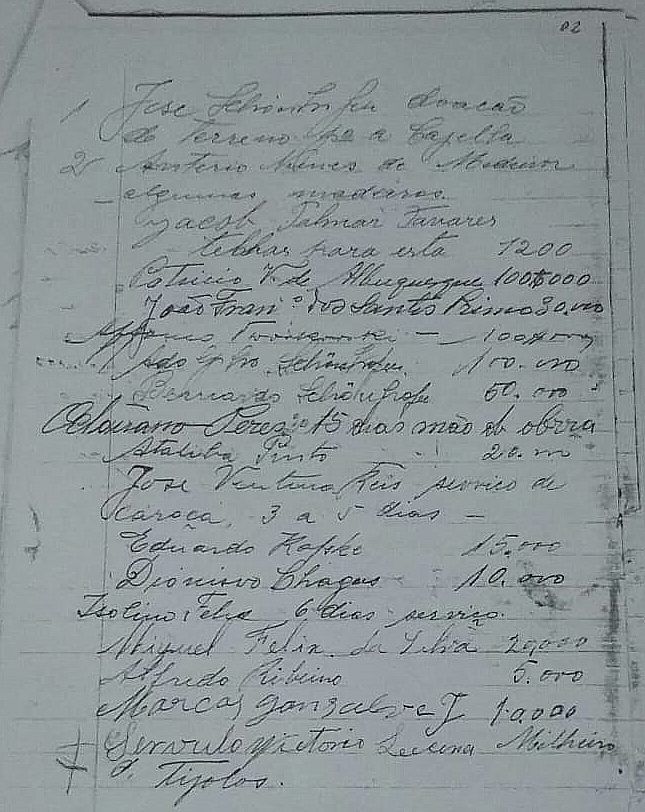 02
1 Jose Schönhofen doacão
do terreno pa a Capella
2 Antonio Nunes de Medeiros
algumas madeiras
Jacob Palmar Tavares
telhas para esta 1200
Patricio V. de Albuquerque 100$000
João Franº dos Santos Primo 30,000
Affonso — 100$000
Adolpho Schönhofen 100.000
Bernardo Schönhofen 50.000
Peres 15 dias mão de obvra
Ataliba Pinto 20.000
Jose Ventura Reis servico de
caroça, 3 a 5 dias —
Eduardo Hopske 15.000
Dionisio Chagas 10.000
Isolino Felix 6 dias serviço.
Miguel Felix da Silva 20,000
Alfredo Ribeiro 5.000
Marcos Gonsalves 10.000
Servulo Victorio Lucena Milheiro
d. Tijolos.